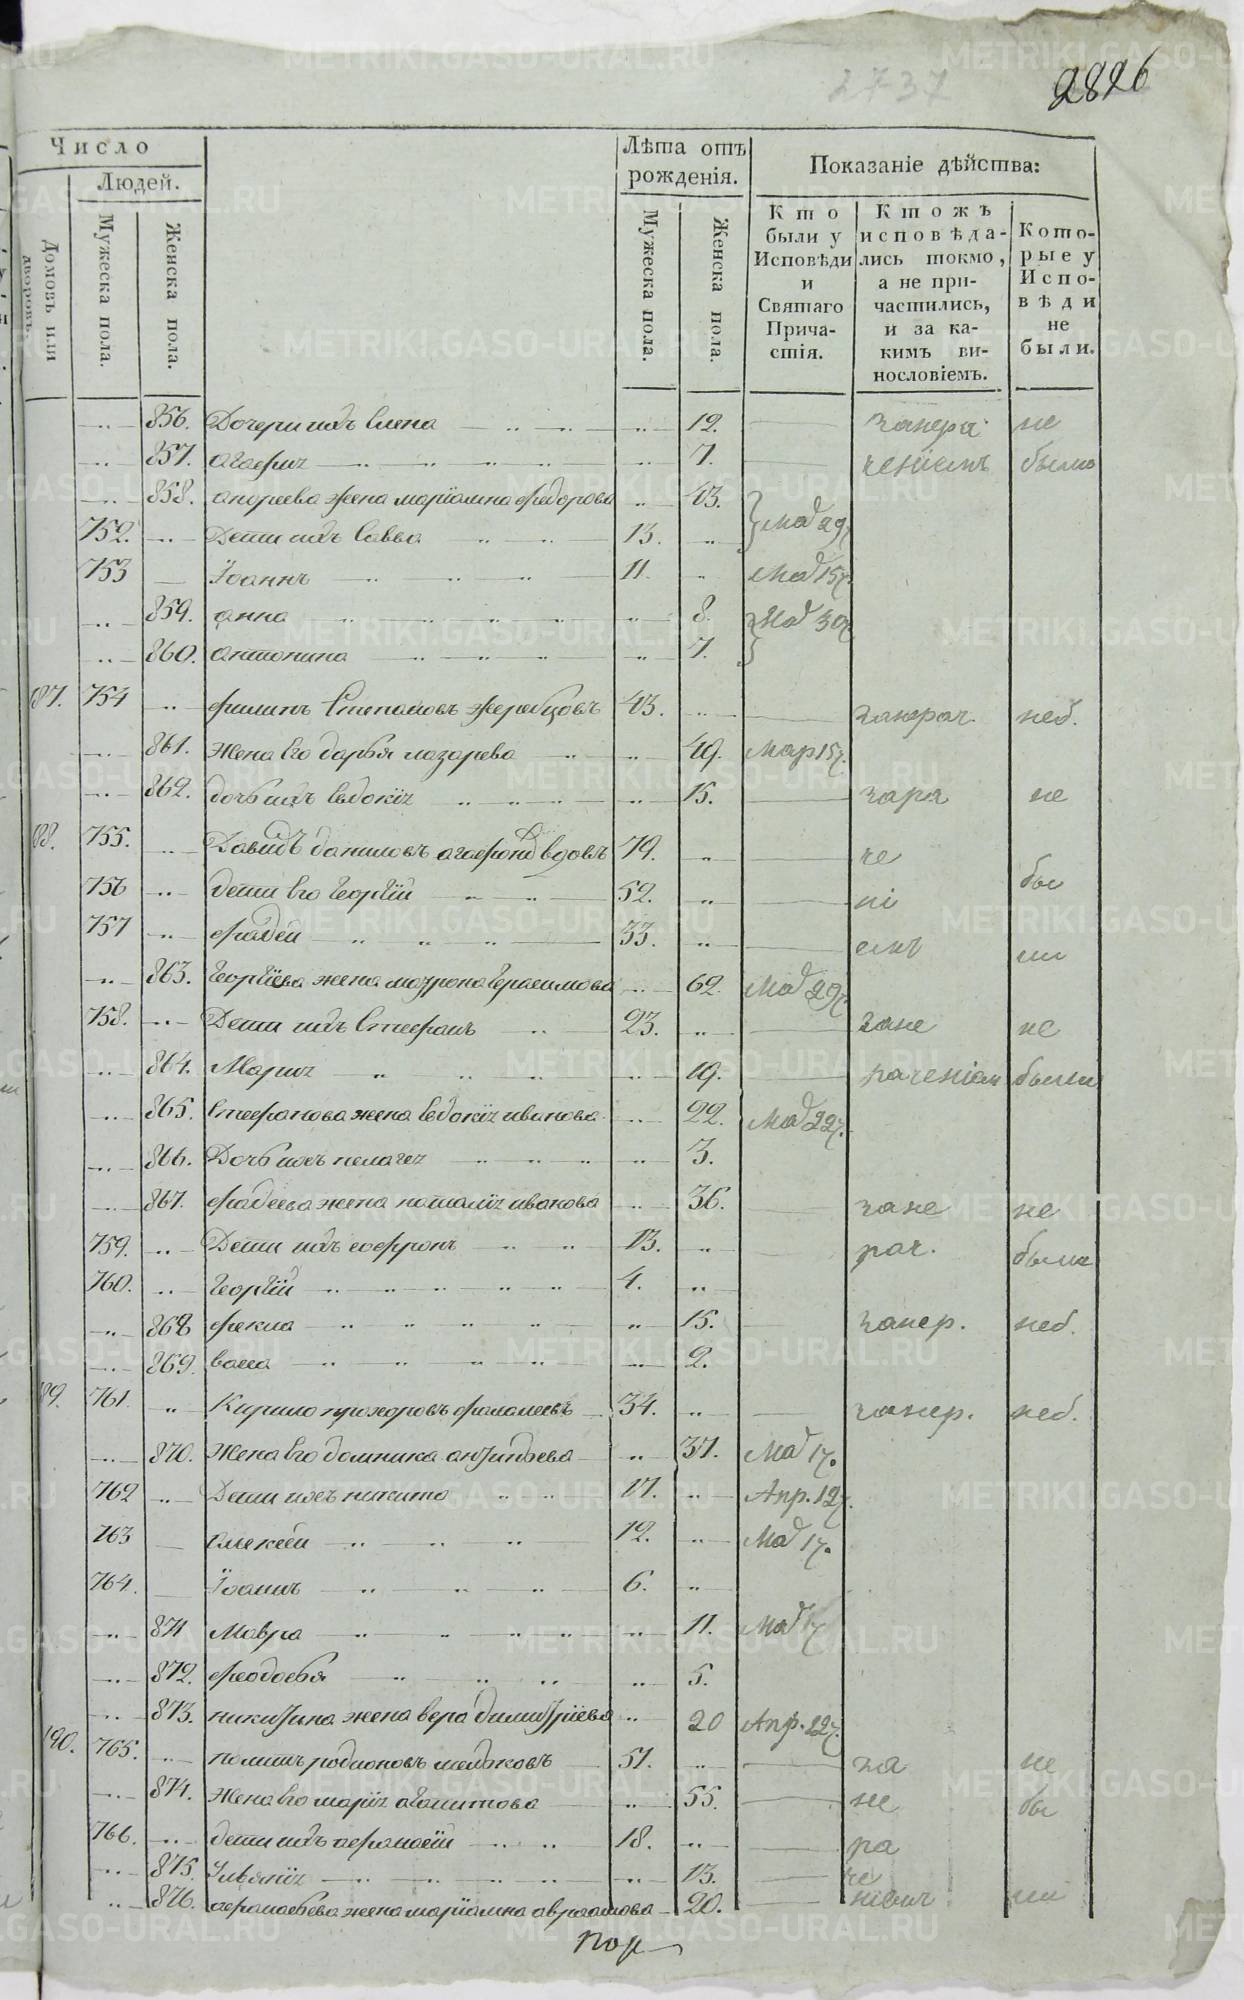 2737
2826
Число
Людей.
Домовъ или дворовъ.
Мужеска пола.
Женска пола.
Лѣта отъ рожденія.
Мужеска пола.
Женска пола.
Показаніе дѣйства:
Кто были у Исповѣди и Святаго Причастія.
Ктожѣ исповѣдались токмо, а не причастились, и за какимъ винословіемъ.
Которые у Исповѣди не были.
856. Дочери ихъ Елена 12. занера не
857. агафия 7. ченiемъ были
858. андреева жена марїамна федорова 43.
752. Дети ихъ Савва 13. Мая 29
753 Їоаннъ 11. Мая 15
859. анна 8. Мая 30
860. антонина 7.
187. 754 филипъ Степановъ жеребцовъ 43. занерач. неб.
861. жена его дарья лазарева 49. Мар 15
862. дочь ихъ евдокїя 15. не
188. 755. Давидъ даниловъ вдовъ 79. че
756 дети его Георгїй 52. нi бы
757 фадей 33. емъ ли
863. Георгїева жена матрона Герасимова 62. Мая 29
758. Дети ихъ Стефанъ 23. зане не
864. Мария 19. рачением были
865. Стефанова жена Евдокїя иванова 22. Мая 22
866. Дочь ихъ пелагея 3.
867. фадеева жена наталїя иванова 36. зане не
759. Дети ихъ софронъ 13. рач. были
760. Георгїй 4.
868 фекла 15. занер. неб.
869. васса 2.
189. 761. Кирило прохоровъ 34. занер. неб.
870. жена его домника 37. Мая 17.
762 Дети ихъ никита 17. Апр. 12
763 алексей 12. Мая 17.
764. Їоаннъ 6.
871 Мавра 11. Мая 17
872. феодосья 5.
873. никитина жена вера димитрїева 20 Апр. 12
190. 765. родионовъ 51. за не
874. жена его марїя 55. не бы
766. дети ихъ афанасей 18. ра
875. Ульянїя 13. че
876. афанасьева жена марїамна 20. нiемъ ли